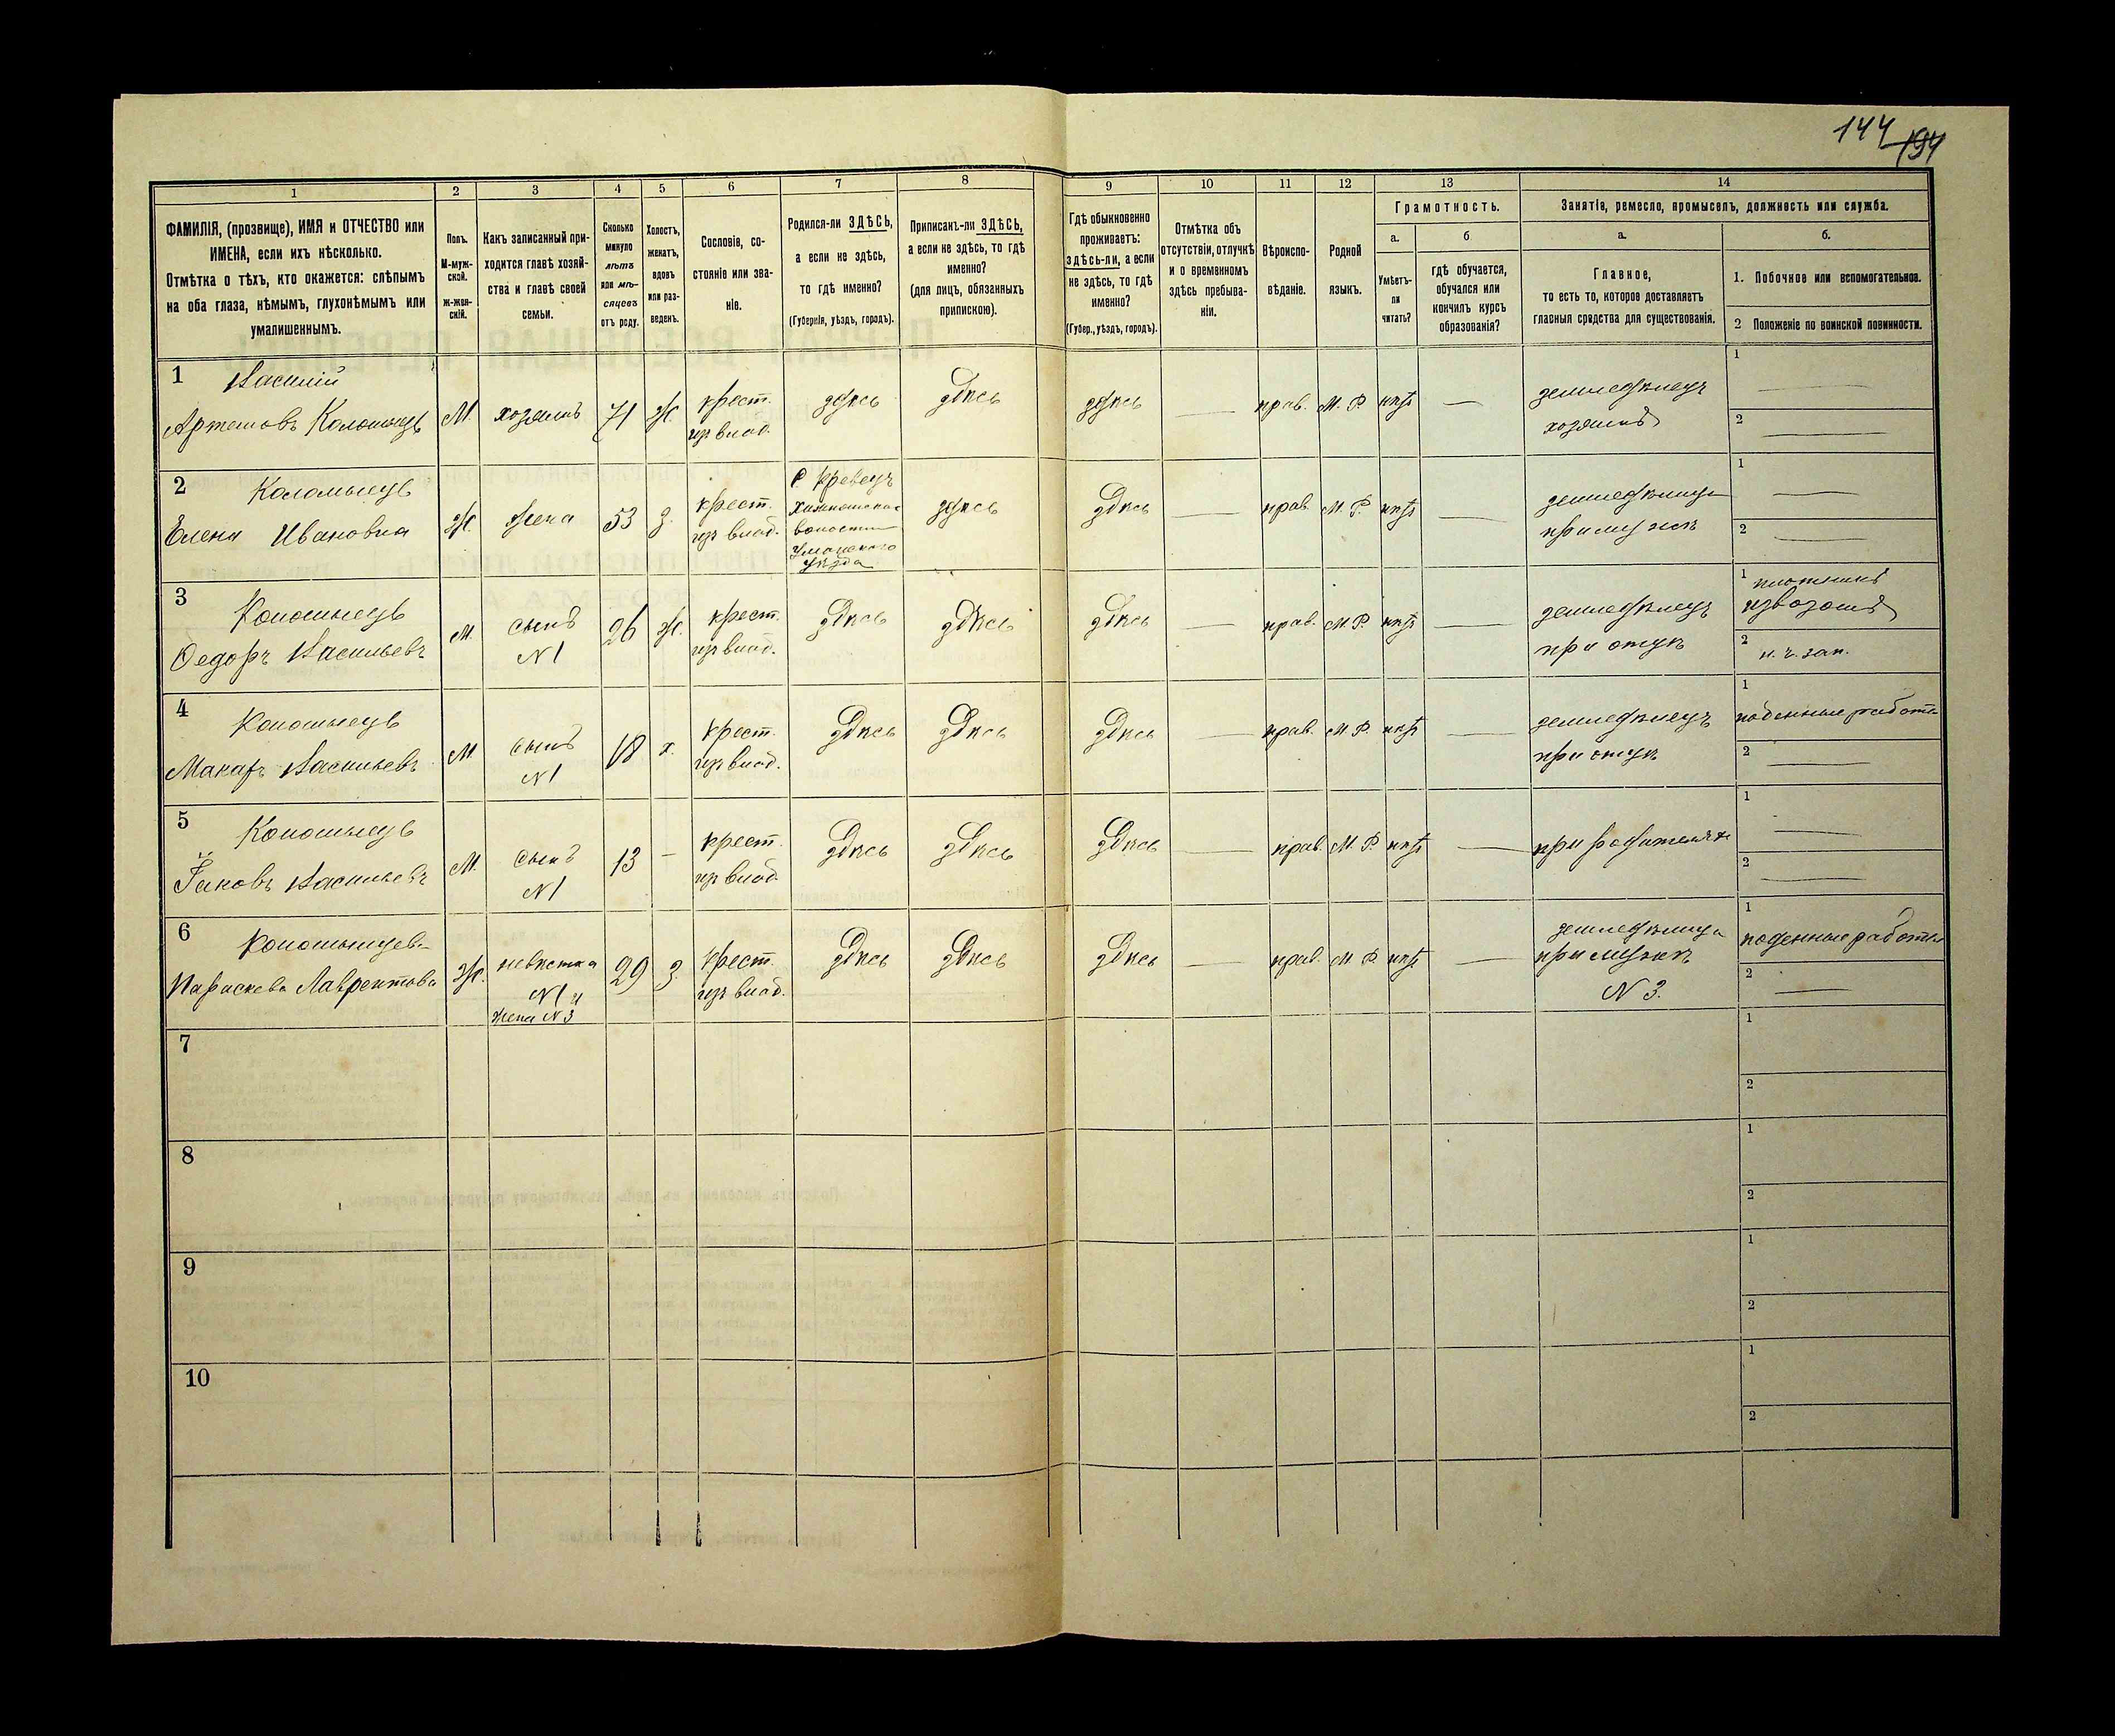 144
194
1
2
3
4
5
6
7
8
9
10
11
12
13
14
ФАМИЛІЯ, (прозвище), ИМЯ и ОТЧЕСТВО или
ИМЕНА, если ихъ нѣсколько.
Отмѣтка о тѣхъ, кто окажется: слѣпымъ
на оба глаза, нѣмымъ, глухонѣмымъ или
умалишеннымъ.
Полъ.
М-муж-
ской.
ж-жен-
скій.
Какъ записанный при-
ходится главѣ хозяй-
ства и главѣ своей
семьи.
Сколько
минуло
лѣтъ
или мѣ-
сяцевъ
отъ роду.
Холостъ,
женатъ,
вдовъ
или раз-
веденъ.
Сословіе, со-
стояніе или зва-
ніе.
Родился-ли ЗДѢСЬ,
а если не здѣсь,
то гдѣ именно?
(Губернія, уѣздъ, городъ).
Приписанъ-ли ЗДѢСЬ,
а если не здѣсь, то гдѣ
именно?
(для лицъ, обязанныхъ
припискою).
Гдѣ обыкновенно
проживаетъ:
здѣсь-ли, а если
не здѣсь, то гдѣ
именно?
(Губер., уѣздъ, городъ).
Отмѣтка объ
отсутствіи, отлучкѣ
и о временномъ
здѣсь пребыва-
ніи.
Вѣроиспо-
вѣданіе.
Родной
языкъ.
Грамотность.
а.
Умѣетъ-
ли
читать?
б
гдѣ обучается,
обучался или
кончилъ курсъ
образованія?
Занятіе, ремесло, промыселъ, должность или служба.
а.
Главное,
то есть то, которое доставляетъ
главныя средства для существованія.
б.
1. Побочное или вспомогательное.
2 Положеніе по воинской повинности.
1 Василій
Артемовъ Коломыецъ
М.
хозяинъ
71
Ж.
крест.
изъ влад.
здѣсь
здѣсь
здѣсь
прав.
М. Р.
нѣтъ
земледѣлецъ
хозяинъ
1
2
2 Коломыецъ
Елена Ивановна
Ж.
жена
53
З.
крест.
изъ влад.
волости
Уманского
уѣзда
здѣсь
здѣсь
прав.
М. Р.
нѣтъ
земледѣлица
при мужѣ
1
2
3 Коломыецъ
Федоръ Васильевъ
М.
сынъ
N 1
26
Ж.
крест.
изъ влад.
здѣсь
здѣсь
здѣсь
прав.
М. Р.
нѣтъ
земледѣлецъ
при отцѣ
1 плотникъ
2 н. ч. зап.
4 Коломыецъ
Макаръ Васильевъ
М.
сынъ
N 1
18
х.
крест.
изъ влад.
здѣсь
здѣсь
здѣсь
прав.
М. Р.
нѣтъ
земледѣлецъ
при отцѣ
1
поденные работы
2
5 Коломыецъ
Яковъ Васильевъ
М.
сынъ
N 1
13
крест.
изъ влад.
здѣсь
здѣсь
здѣсь
прав.
М. Р.
нѣтъ
при родителяхъ
1
2
6 Коломыицева
Параскева Лаврентова
Ж.
невѣстка
N 1 и
жена N 3
29
З.
крест.
изъ влад.
здѣсь
здѣсь
здѣсь
прав.
М. Р.
нѣтъ
земледѣлица
при мужѣ
N 3.
1
поденные работы
2
7
1
2
8
1
2
9
1
2
10
1
2